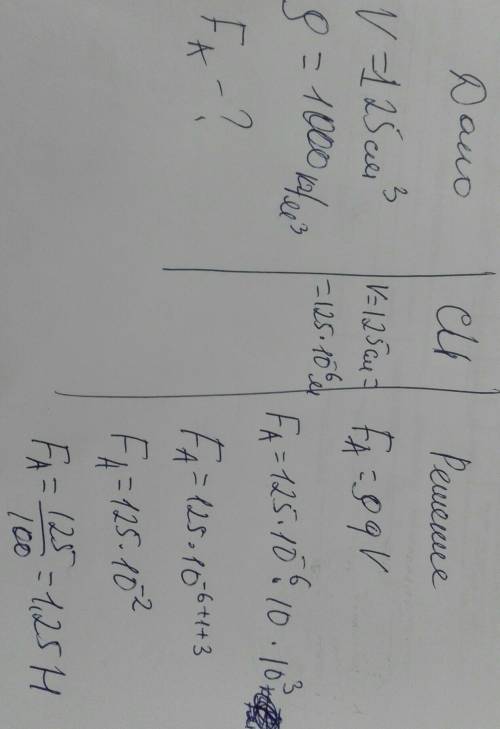 Дано
V=125см³
ρ=1000кг/м³
F_A - ?
СИ
V=125см=
=125·10⁻⁶м
Решение
F_A=ρgV
F_A=125·10⁻⁶·10·10³
F_A=125·10⁻⁶⁺¹⁺³
F_A=125·10⁻²
F_A=125/100=1,25Н